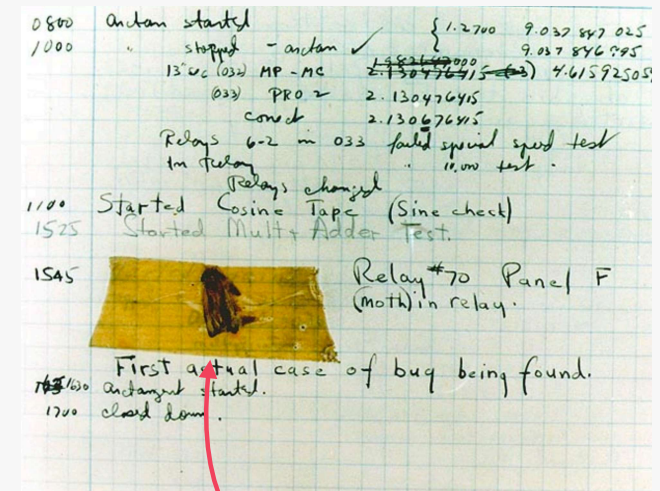 0800 arctan started { 1.2700 9.037 847 025
1000 " stopped - arctan ✓ 9.037 846 995
13"UC (032) MP - MC 2.130476415 (-3) 4.615925059
(033) PRO 2 2.130476415
correct 2.130676415
Relays 6-2 in 033 failed special speed test
In relay " 10.000 test.
Relays changed
1100 Started Cosine Tape (Sine check)
1525 Started Mult + Adder Test.
1545 Relay #70 Panel F
(moth) in relay.
First actual case of bug being found.
1630 arctangent started.
1700 closed down.